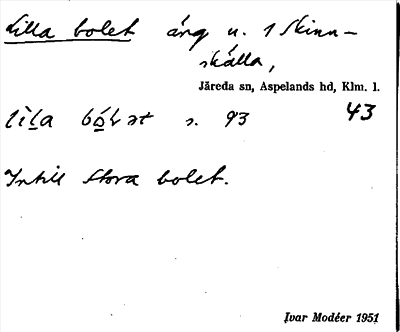 Lilla bolet äng u. 1 Skinn-
skälla,
Järeda sn, Aspelands hd, Klm. l.
s. 93 43
Intill Stora bolet.
Ivar Modéer 1951